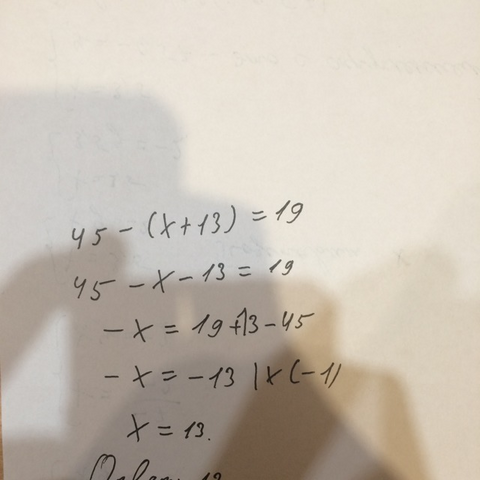 45 - (x+13) = 19
45 - x - 13 = 19
- x = 19 + 13 - 45
- x = -13 | x (-1)
x = 13.